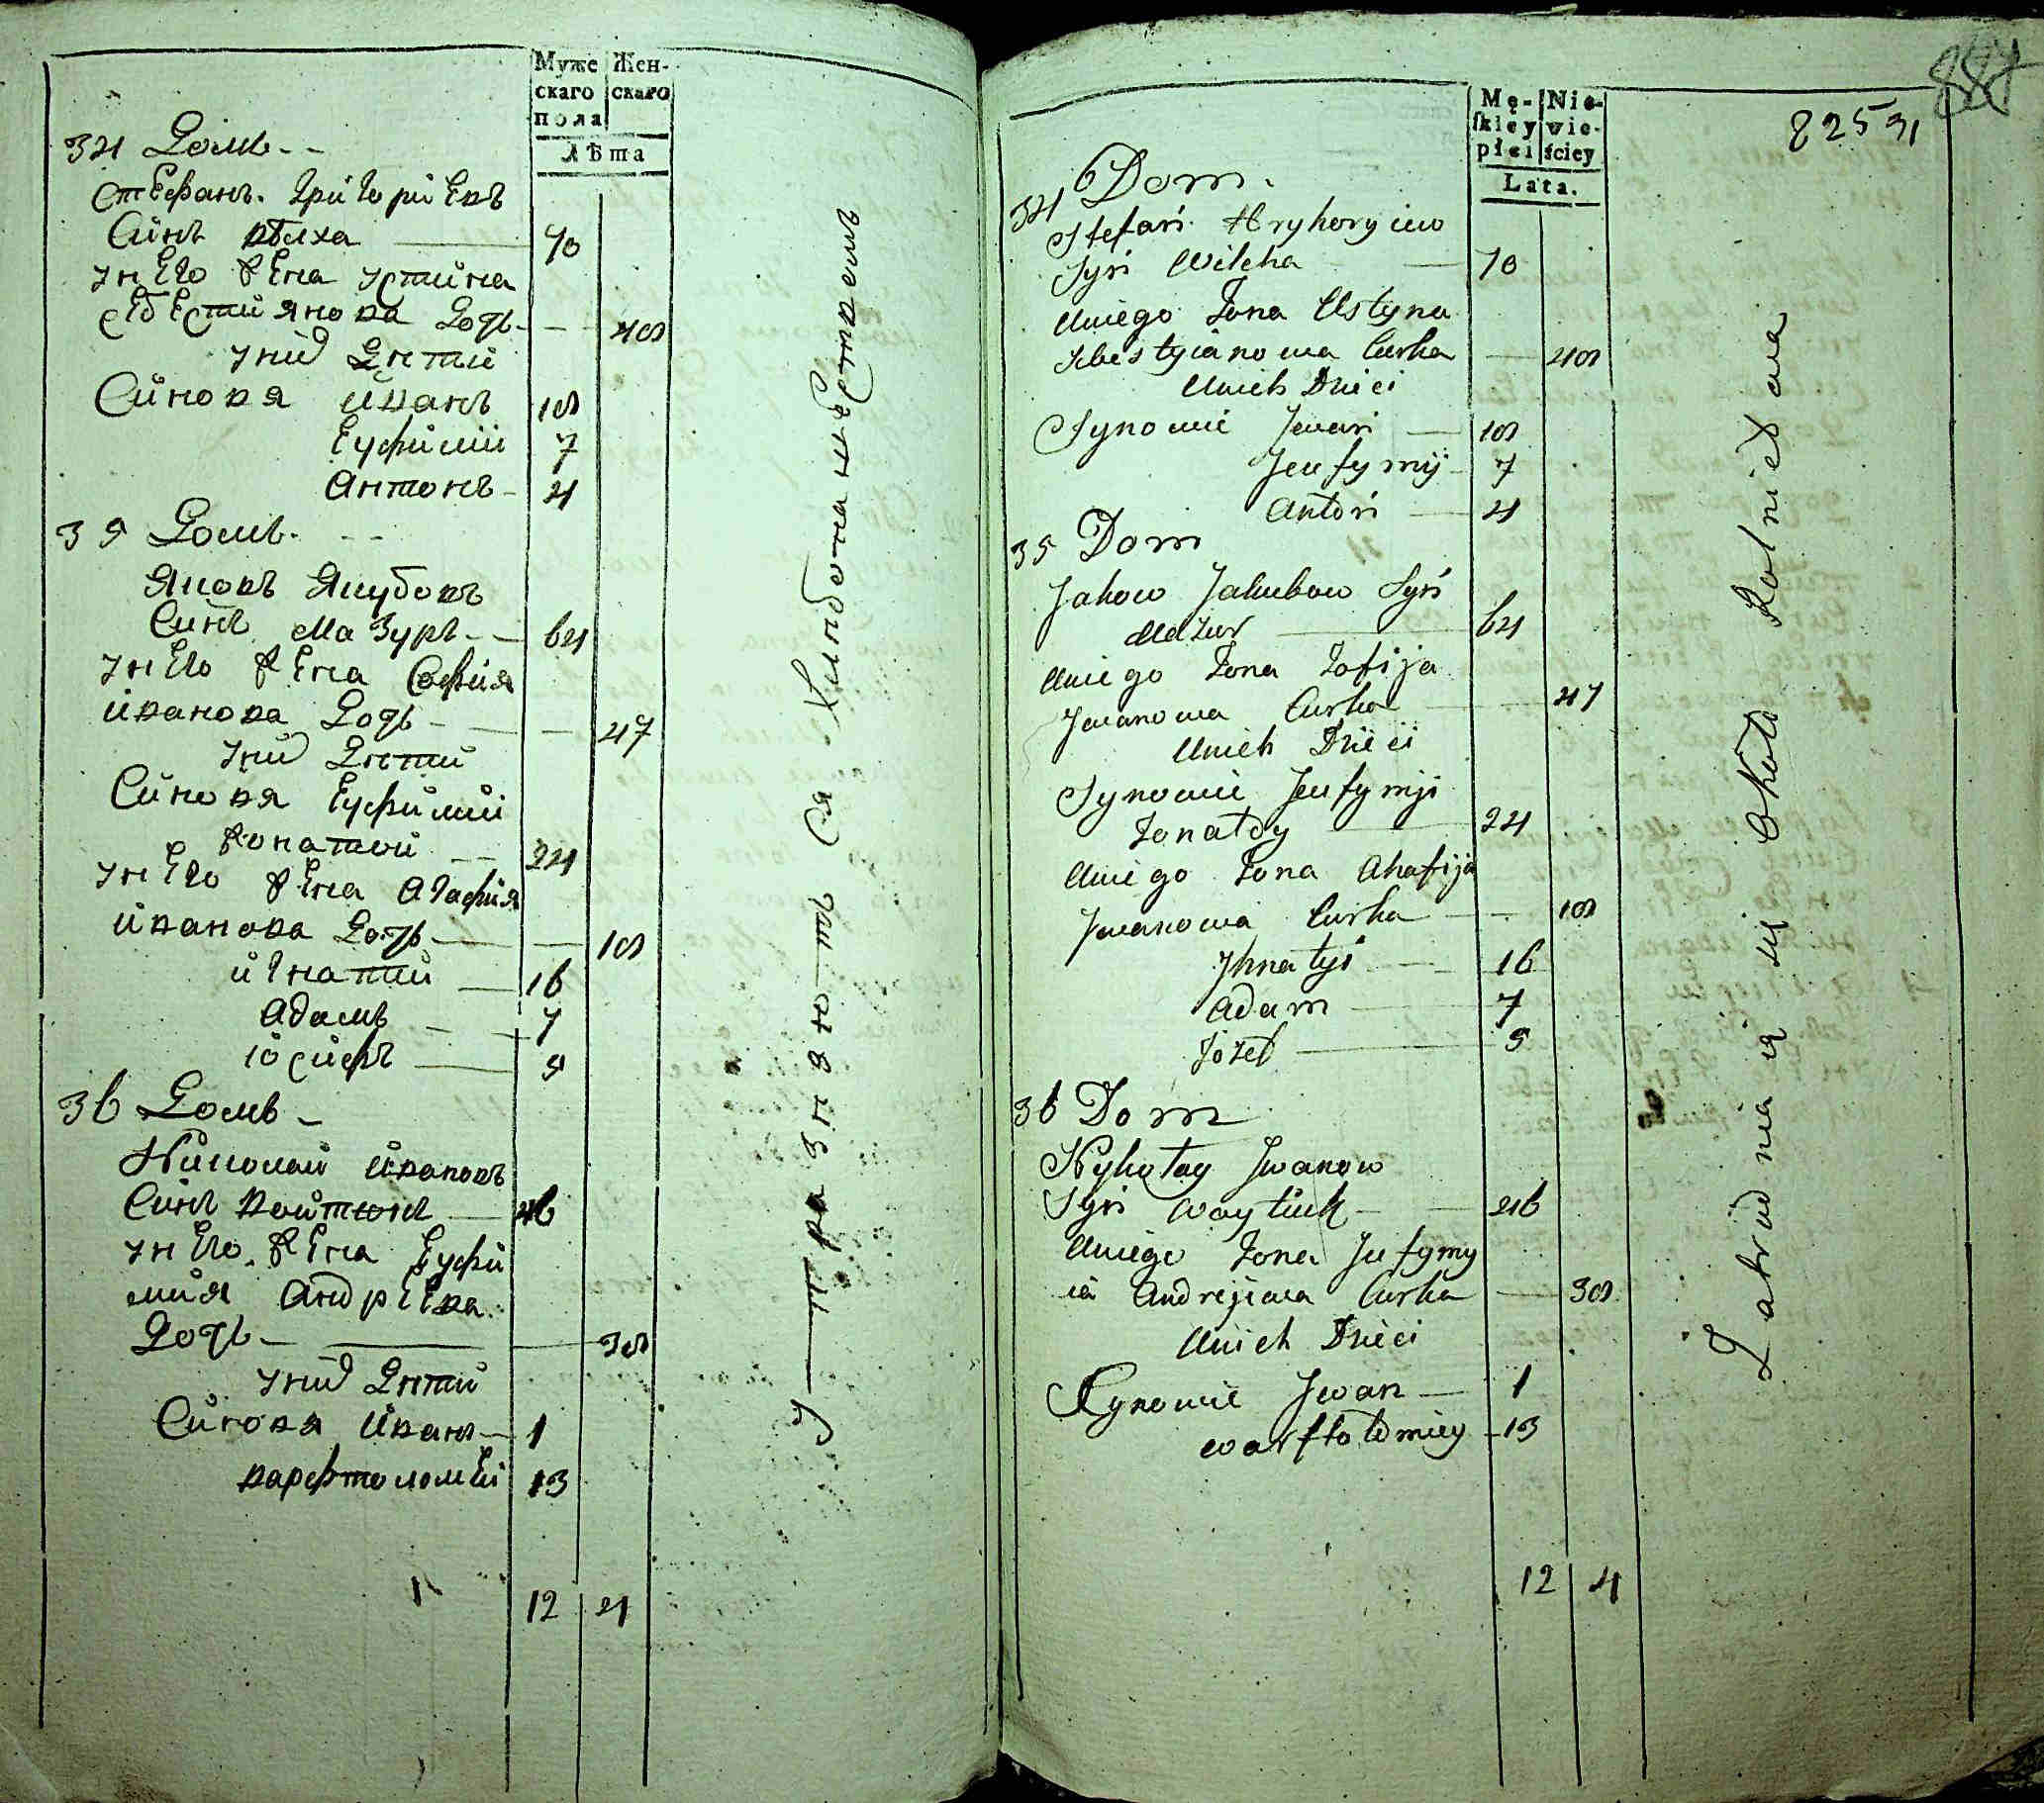 Муже
скаго
пола
Жен-
скаго
лѣта
34 Домъ
Стефанъ Григоріевъ
Синъ вѣлха 70
унего жена устина
себестиянова Дочь 40
уних Дѣти
Синовя иванъ 10
Еуфимій 7
Антонъ 4
35 Домъ
Яковъ Якубовъ
Синъ Мазуръ 64
унего жена Софія
иванова Дочь 47
уних Дѣти
Синовя Еуфимій
жонатой 24
унего жена Агафія
иванова Дочь 10
игнатий 16
Адамъ 7
іосифъ 5
36 Домъ
Николай ивановъ
Синъ войтюкъ 46
унего жена Еуфи
мия Андрѣева
Дочь 30
уних Дѣти
Синовя иванъ 1
варфтоломѣй 13
12 4
Упражнюются Хлѣбопашествомъ
887
825 31
Mę-
skiey
płci
Nie-
wie-
ściey
Lata.
34 Dom
Stefan Hryhoryiew
Syn Wilcha 70
Uniego Zona Ustyna
Sebestyianowa Curka 40
Unich Dzieci
Synowie Jwan 10
Jeufymij 7
Anton 4
35 Dom
Jakow Jakubow Syn
Mazur 64
Uniego Zona Zofija
Jwanowa Curka 47
Unich Dzieci
Synowie Jeufymij
Zonatoy 24
Uniego Zona Ahafija
Jwanowa Curka 10
Jhnatyi 16
Adam 7
Józef 5
36 Dom
Nykołay Jwanow
Syn Waytiuk 46
Uniego Zona Jufymy
ia Andrejiewa Curka 30
Unich Dzieci
Synowie Jwan 1
Warftołomiey 13
12 4
Zatrudniaią się około Rolnictwa